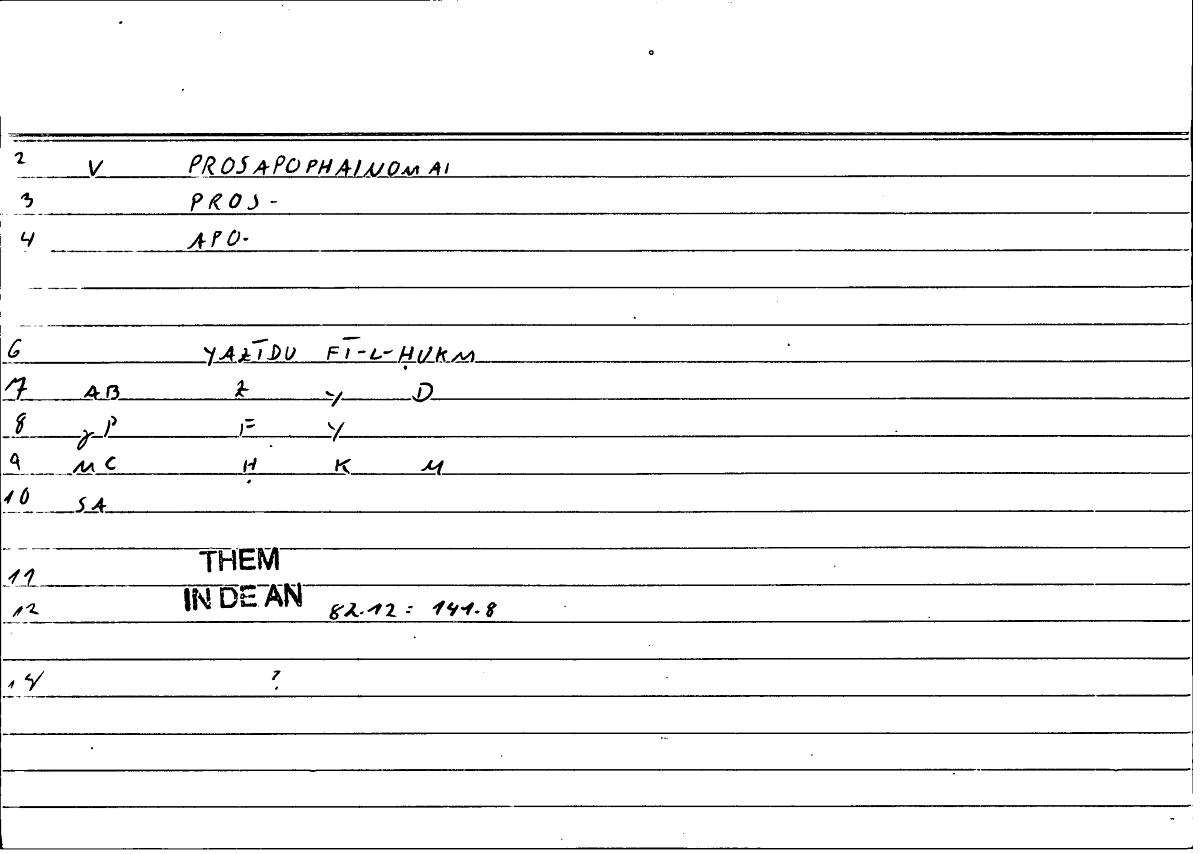 2 V PROSAPOPHAINOMAI
3 PROS-
4 APO-
6 YAZĪDU FĪ-L-ḤUKM
7 AB Z Y D
8 γP F Y
9 MC Ḥ K M
10 SA
THEM
11
IN DE AN
12 82.12 = 141.8
14 ?